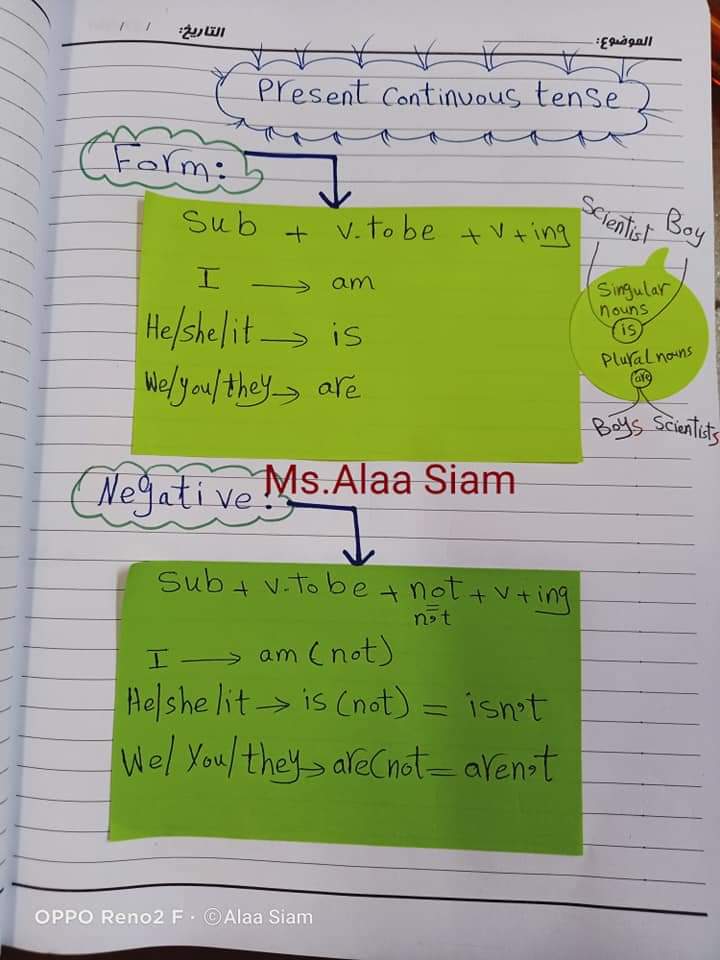 الموضوع: التاريخ: / /
Present Continuous tense
Form:
Sub + v.to be + v + ing
I → am
He/she/it → is
We/you/they → are
Scientist Boy
Singular
nouns
is
Plural nouns
are
Boys Scientists
Ms.Alaa Siam
Negative:
Sub + v.to be + not + v + ing
n,t
I → am (not)
He/she/it → is (not) = isn,t
We/You/they → are(not = aren,t
OPPO Reno2 F · ©Alaa Siam